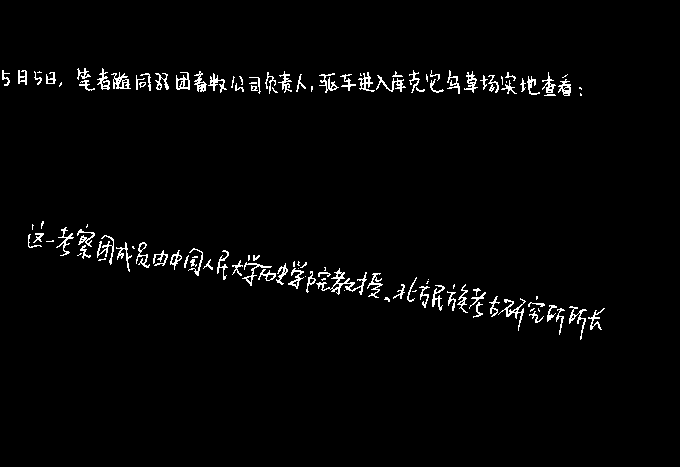 5月5日，笔者随同羽团畜牧公司负责人，驱车进入库克它乌草场实地查看：
这一考察团成员由中国人民大学历史学院教授、北方民族考古研究所所长